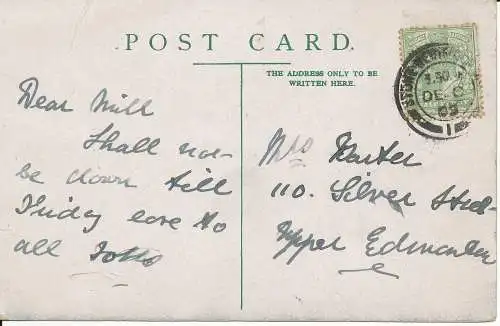 POST CARD.
THE ADDRESS ONLY TO BE
WRITTEN HERE.
Dear Will
Shall not
be down till
Friday love to
all
Mrs Harter
110. Silver Street
Upper Edmonton